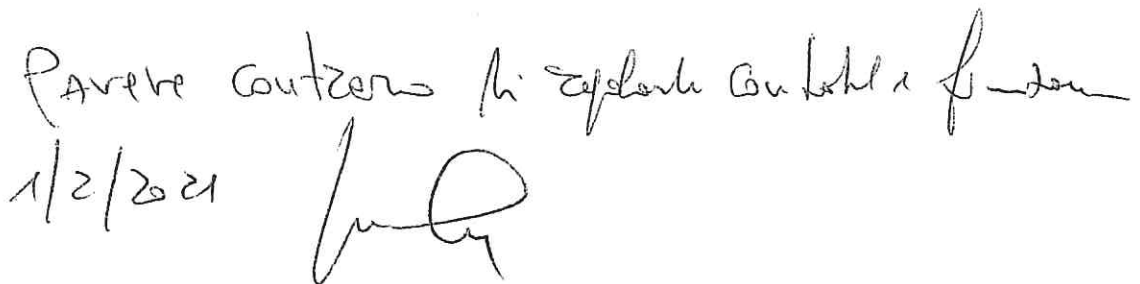 Parere contrario di regolarità contabile e finanziaria
1/2/2021